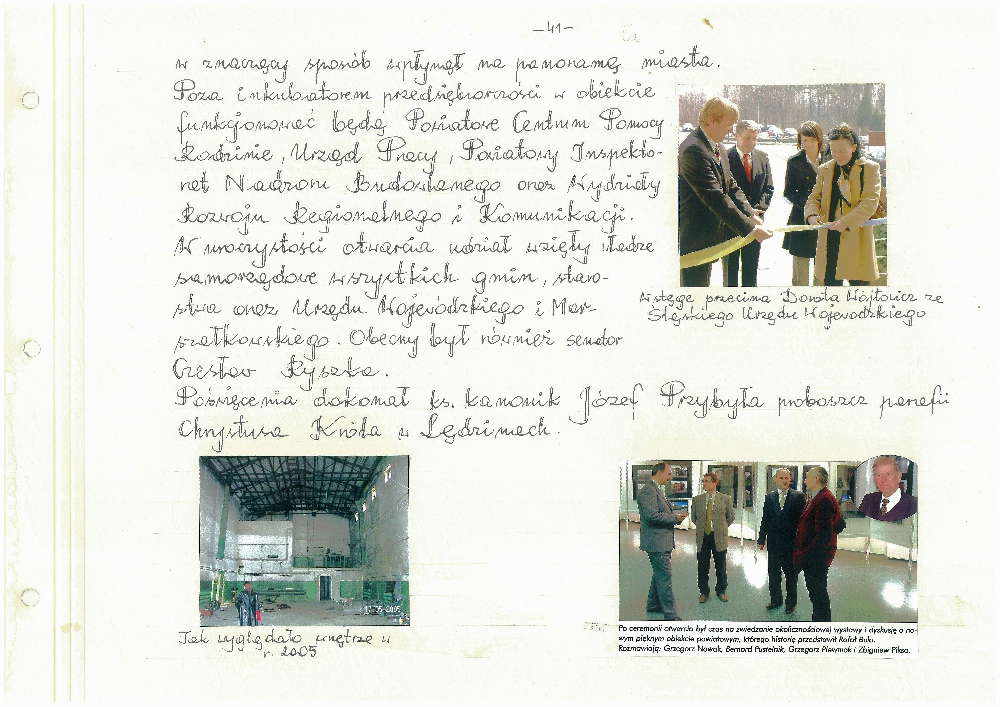 -41-
w znaczący sposób wpłynął na panoramę miasta.
Poza inkubatorem przedsiębiorczości w obiekcie
funkcjonować będą Powiatowe Centrum Pomocy
Rodzinie, Urząd Pracy, Powiatowy Inspekto-
rat Nadzoru Budowlanego oraz Wydziały
Rozwoju Regionalnego i Komunikacji.
W uroczystości otwarcia udział wzięły władze
samorządowe wszystkich gmin, staro-
stwa oraz Urzędu Wojewódzkiego i Mar-
szałkowskiego. Obecny był również senator
Czesław Ryszka.
Wstęgę przecina Dorota Wójtowicz ze
Śląskiego Urzędu Wojewódzkiego
Poświęcenia dokonał ks. kanonik Józef Przybyła proboszcz parafii
Chrystusa Króla w Lędzinach.
17/05/2005
Tak wyglądało wnętrze w
r. 2005
Po ceremonii otwarcia był czas na zwiedzanie okolicznościowej wystawy i dyskusję o no-
wym pięknym obiekcie powiatowym, którego historię przedstawił Rafał Bula.
Rozmawiają: Grzegorz Nowak, Bernard Pustelnik, Grzegorz Plewniok i Zbigniew Piksa.